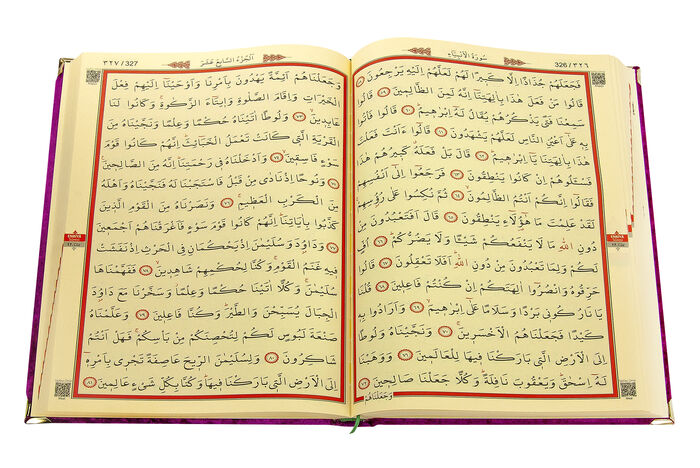 سُورَةُ الْاَنْبِيَاءِ
326/٣٢٦
فَجَعَلَهُمْ جُذَاذًا اِلَّا كَبِيرًا لَهُمْ لَعَلَّهُمْ اِلَيْهِ يَرْجِعُونَ ٥٨
قَالُوا مَنْ فَعَلَ هٰذَا بِاٰلِهَتِنَا اِنَّهُ لَمِنَ الظَّالِمِينَ ٥٩ قَالُوا
سَمِعْنَا فَتًى يَذْكُرُهُمْ يُقَالُ لَهُ اِبْرٰهِيمُ ٦٠ قَالُوا فَأْتُوا
بِهِ عَلٰٓى اَعْيُنِ النَّاسِ لَعَلَّهُمْ يَشْهَدُونَ ٦١ قَالُوا ءَاَنْتَ فَعَلْتَ
هٰذَا بِاٰلِهَتِنَا يَٓا اِبْرٰهِيمُ ٦٢ قَالَ بَلْ فَعَلَهُ كَبِيرُهُمْ هٰذَا
فَسْـَٔلُوهُمْ اِنْ كَانُوا يَنْطِقُونَ ٦٣ فَرَجَعُٓوا اِلٰٓى اَنْفُسِهِمْ
فَقَالُٓوا اِنَّكُمْ اَنْتُمُ الظَّالِمُونَ ٦٤ ثُمَّ نُكِسُوا عَلٰى رُؤُسِهِمْ
لَقَدْ عَلِمْتَ مَا هٰٓؤُلَٓاءِ يَنْطِقُونَ ٦٥ قَالَ اَفَتَعْبُدُونَ مِنْ
دُونِ اللّٰهِ مَا لَا يَنْفَعُكُمْ شَيْـًٔا وَلَا يَضُرُّكُمْ ٦٦ اُفٍّ
لَكُمْ وَلِمَا تَعْبُدُونَ مِنْ دُونِ اللّٰهِ اَفَلَا تَعْقِلُونَ ٦٧ قَالُوا
حَرِّقُوهُ وَانْصُرُٓوا اٰلِهَتَكُمْ اِنْ كُنْتُمْ فَاعِلِينَ ٦٨ قُلْنَا
يَا نَارُ كُونِي بَرْدًا وَسَلَامًا عَلٰٓى اِبْرٰهِيمَ ٦٩ وَاَرَادُوا بِهِ
كَيْدًا فَجَعَلْنَاهُمُ الْاَخْسَرِينَ ٧٠ وَنَجَّيْنَاهُ وَلُوطًا
اِلَى الْاَرْضِ الَّتِي بَارَكْنَا فِيهَا لِلْعَالَمِينَ ٧١ وَوَهَبْنَا
لَهُٓ اِسْحٰقَ وَيَعْقُوبَ نَافِلَةً وَكُلًّا جَعَلْنَا صَالِحِينَ ٧٢
وَجَعَلْنَاهُمْ
اَلْجُزْءُ السَّابِعَ عَشَرَ
٣٢٧/327
وَجَعَلْنَاهُمْ اَئِمَّةً يَهْدُونَ بِاَمْرِنَا وَاَوْحَيْنَٓا اِلَيْهِمْ فِعْلَ
الْخَيْرَاتِ وَاِقَامَ الصَّلٰوةِ وَاِيتَٓاءَ الزَّكٰوةِ وَكَانُوا لَنَا
عَابِدِينَ ٧٣ وَلُوطًا اٰتَيْنَاهُ حُكْمًا وَعِلْمًا وَنَجَّيْنَاهُ مِنَ
الْقَرْيَةِ الَّتِي كَانَتْ تَعْمَلُ الْخَبَٓائِثَ اِنَّهُمْ كَانُوا قَوْمَ
سَوْءٍ فَاسِقِينَ ٧٤ وَاَدْخَلْنَاهُ فِي رَحْمَتِنَا اِنَّهُ مِنَ الصَّالِحِينَ
٧٥ وَنُوحًا اِذْ نَادٰى مِنْ قَبْلُ فَاسْتَجَبْنَا لَهُ فَنَجَّيْنَاهُ وَاَهْلَهُ
مِنَ الْكَرْبِ الْعَظِيمِ ٧٦ وَنَصَرْنَاهُ مِنَ الْقَوْمِ الَّذِينَ
كَذَّبُوا بِاٰيَاتِنَا اِنَّهُمْ كَانُوا قَوْمَ سَوْءٍ فَاَغْرَقْنَاهُمْ اَجْمَعِينَ
٧٧ وَدَاوُدَ وَسُلَيْمٰنَ اِذْ يَحْكُمَانِ فِي الْحَرْثِ اِذْ نَفَشَتْ
فِيهِ غَنَمُ الْقَوْمِ وَكُنَّا لِحُكْمِهِمْ شَاهِدِينَ ٧٨ فَفَهَّمْنَاهَا
سُلَيْمٰنَ وَكُلًّا اٰتَيْنَا حُكْمًا وَعِلْمًا وَسَخَّرْنَا مَعَ دَاوُدَ
الْجِبَالَ يُسَبِّحْنَ وَالطَّيْرَ وَكُنَّا فَاعِلِينَ ٧٩ وَعَلَّمْنَاهُ
صَنْعَةَ لَبُوسٍ لَكُمْ لِتُحْصِنَكُمْ مِنْ بَأْسِكُمْ فَهَلْ اَنْتُمْ
شَاكِرُونَ ٨٠ وَلِسُلَيْمٰنَ الرِّيحَ عَاصِفَةً تَجْرِي بِاَمْرِهِٓ
اِلَى الْاَرْضِ الَّتِي بَارَكْنَا فِيهَا وَكُنَّا بِكُلِّ شَيْءٍ عَالِمِينَ ٨١